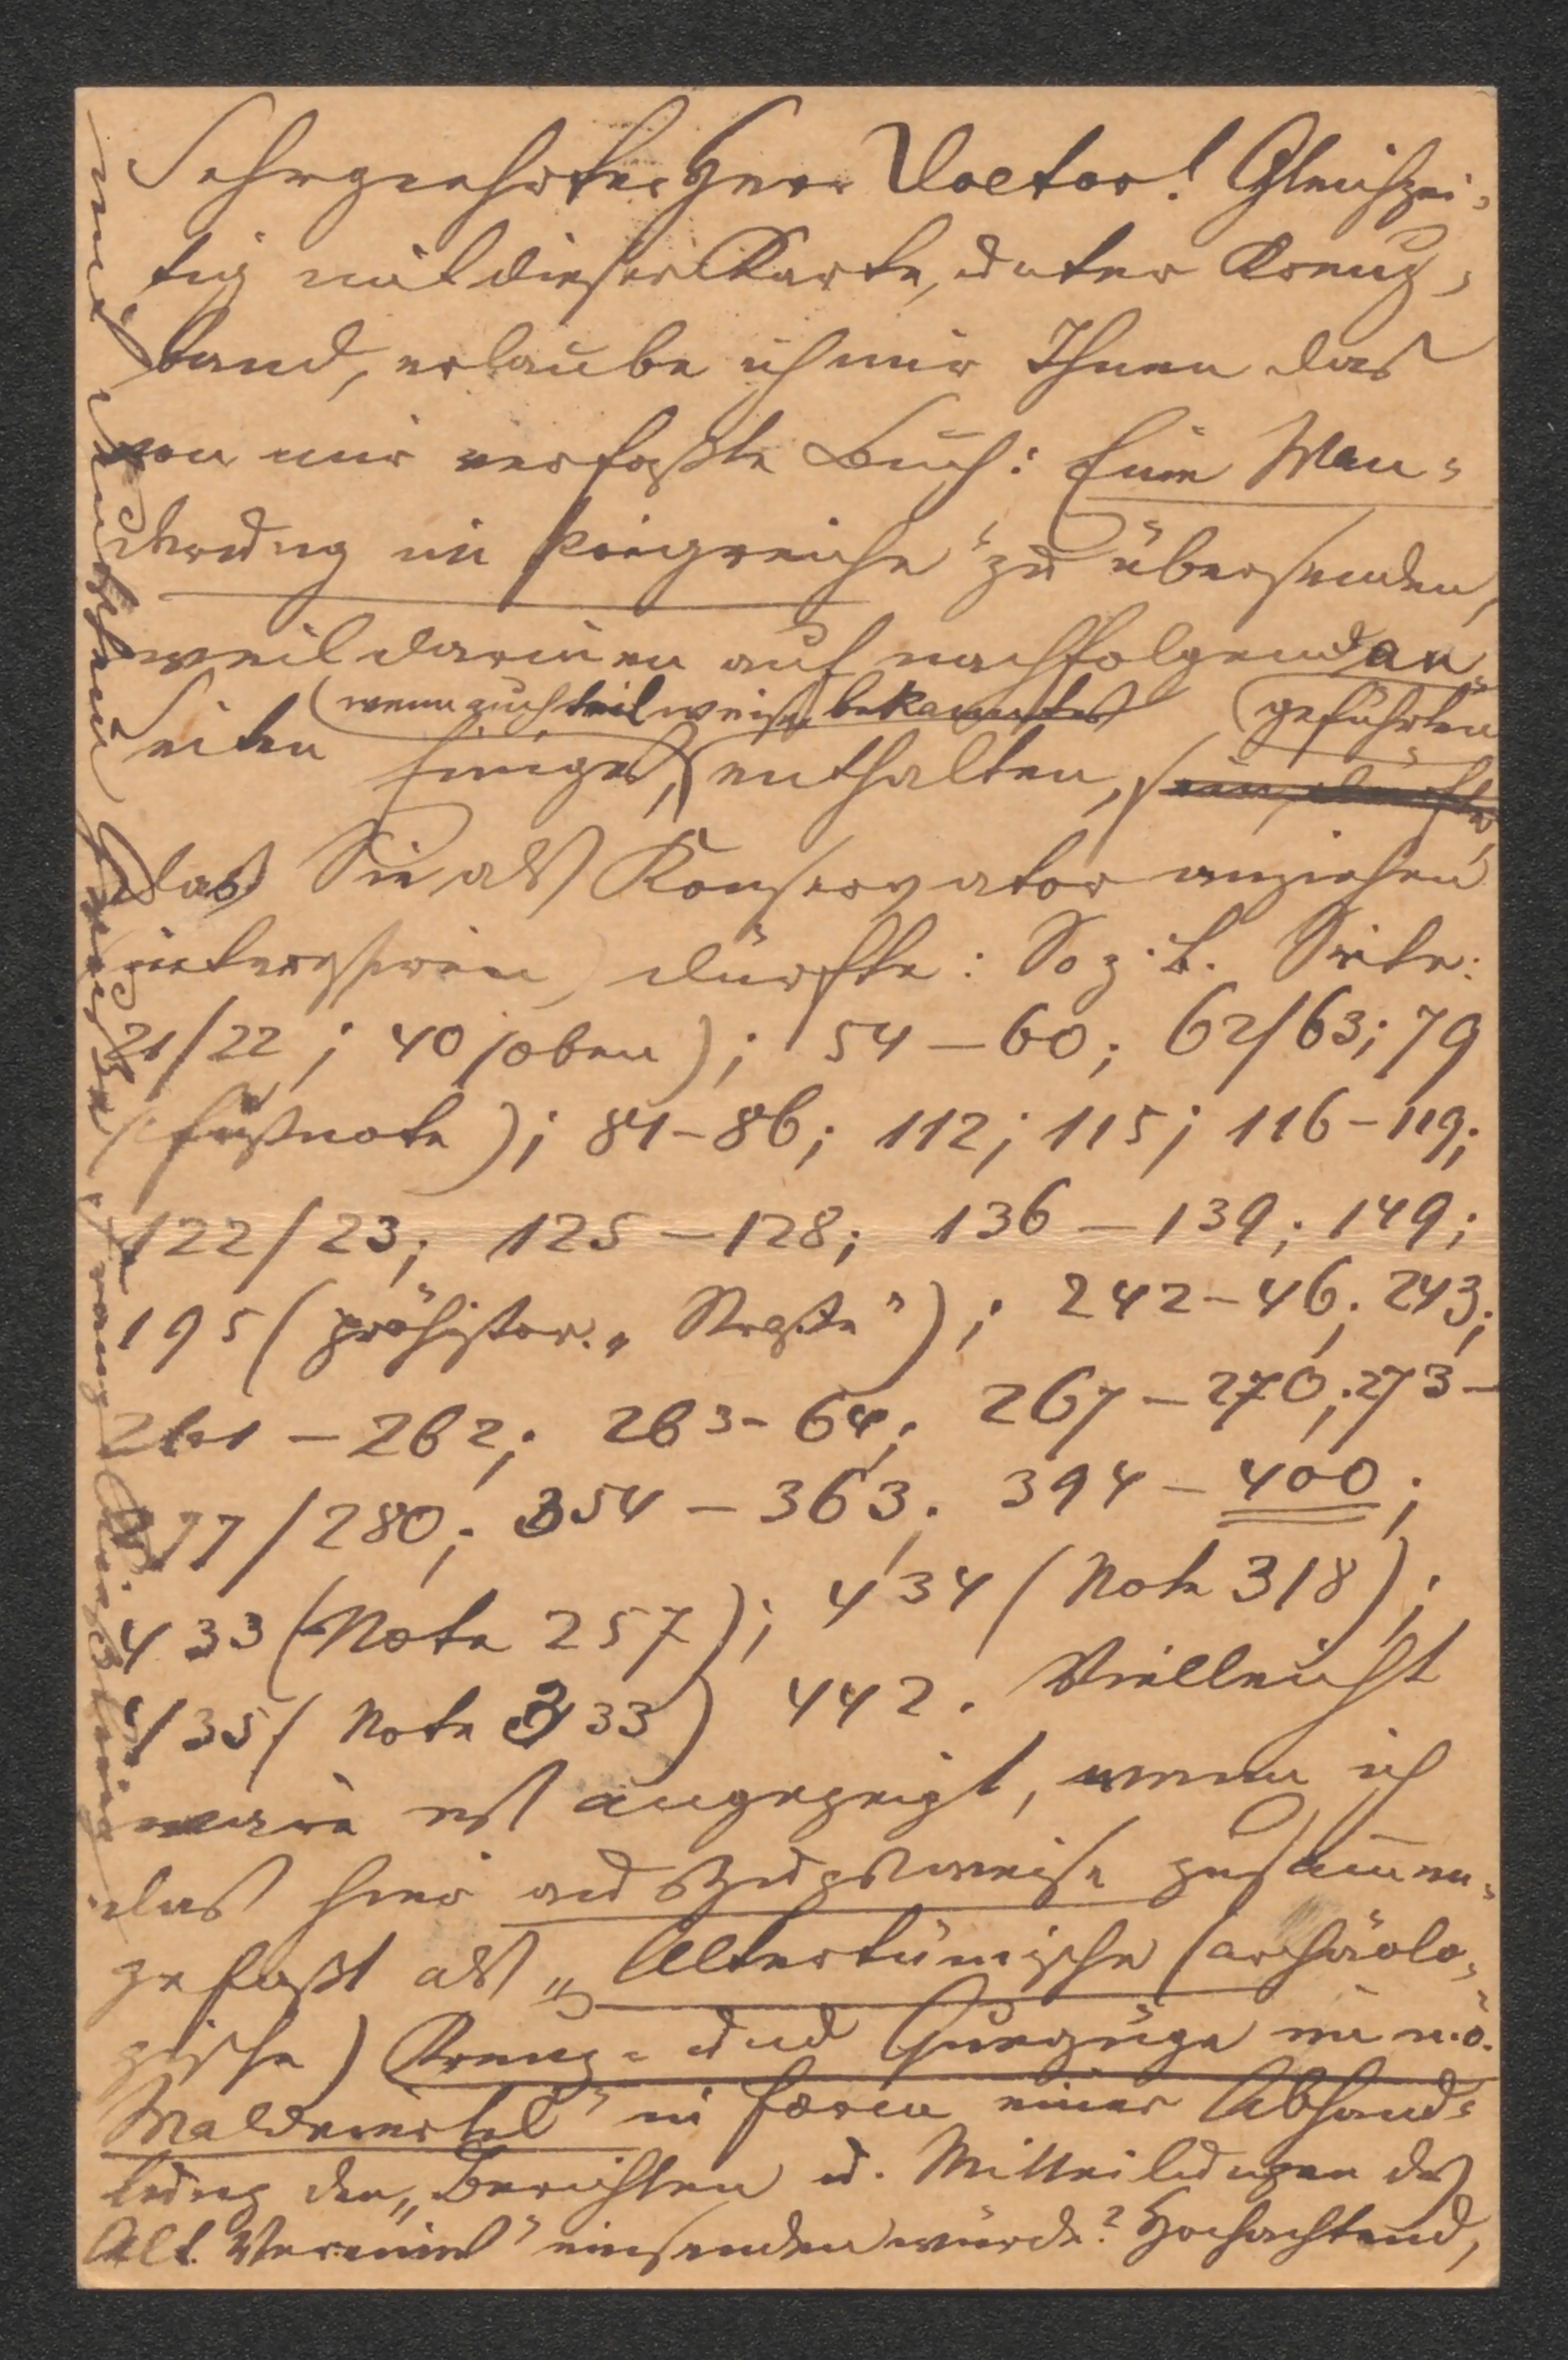 Sehrgeehrter Herr Doctor! Gleichzei-
tig mit dieser Karte, unter Kreuz-
band, erlaube ich mir Ihnen das
von mir verfaßte Buch: Eine Wan-
derung im " zu übersenden,
weil darinnen auf nachfolgend an
geführten
(wenn auch teilweise bekanntes)
Seiten Einiges, enthalten,
das Sie als Konservator anziehen
interessiren) dürfte: So z. B. Seite:
21/22; 40 (oben); 54–60; 62/63; 79
(Fußnote); 84–86; 112; 115; 116–119;
122/23; 125–128; 136–139; 149;
195 (prähistor. „Straße"); 242–46; 243;
261–262; 263–64; 267–270; 273–
277/280; 354–363; 394–400;
433 (Note 257); 434 (Note 318);
435 (Note 333) 442. Vielleicht
wäre es angezeigt, wenn ich
das hier auszugsweise zusammen-
gefaßt als „Altertümische (archäolo-
gische) Kreuz- und Querzüge im n.ö.
Waldviertel" in Form einer Abhand-
lung den „Berichten u. Mitteilungen des
Alt. Vereines" einsenden würde? Hochachtend,
Franz